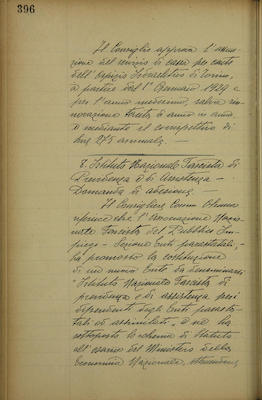 396
Il Consiglio approva l'assun-
zione del servizio di cassa per conto
dell'Ospizio di Torino,
a partire dal 1° Gennaio 1929 e
per l'anno medesimo, salvo rin-
novazione di anno in anno,
e mediante il compenso di
lire 275 annuale. —
8. Istituto Nazionale Fascista di
Previdenza e di Assistenza —
Domanda di adesione —
Il Consigliere Comm.
riferisce che l'Associazione Nazio-
nale Fascista del Pubblico Im-
piego - Sezione Enti parastatali, -
ha promosso la costituzione
di un nuovo Ente da denominarsi
"Istituto Nazionale Fascista di
previdenza e di assistenza per i
dipendenti degli Enti parasta-
tali ed assimilati", e ne ha
sottoposto lo schema di Statuto
all'esame del Ministero della
Economia Nazionale,